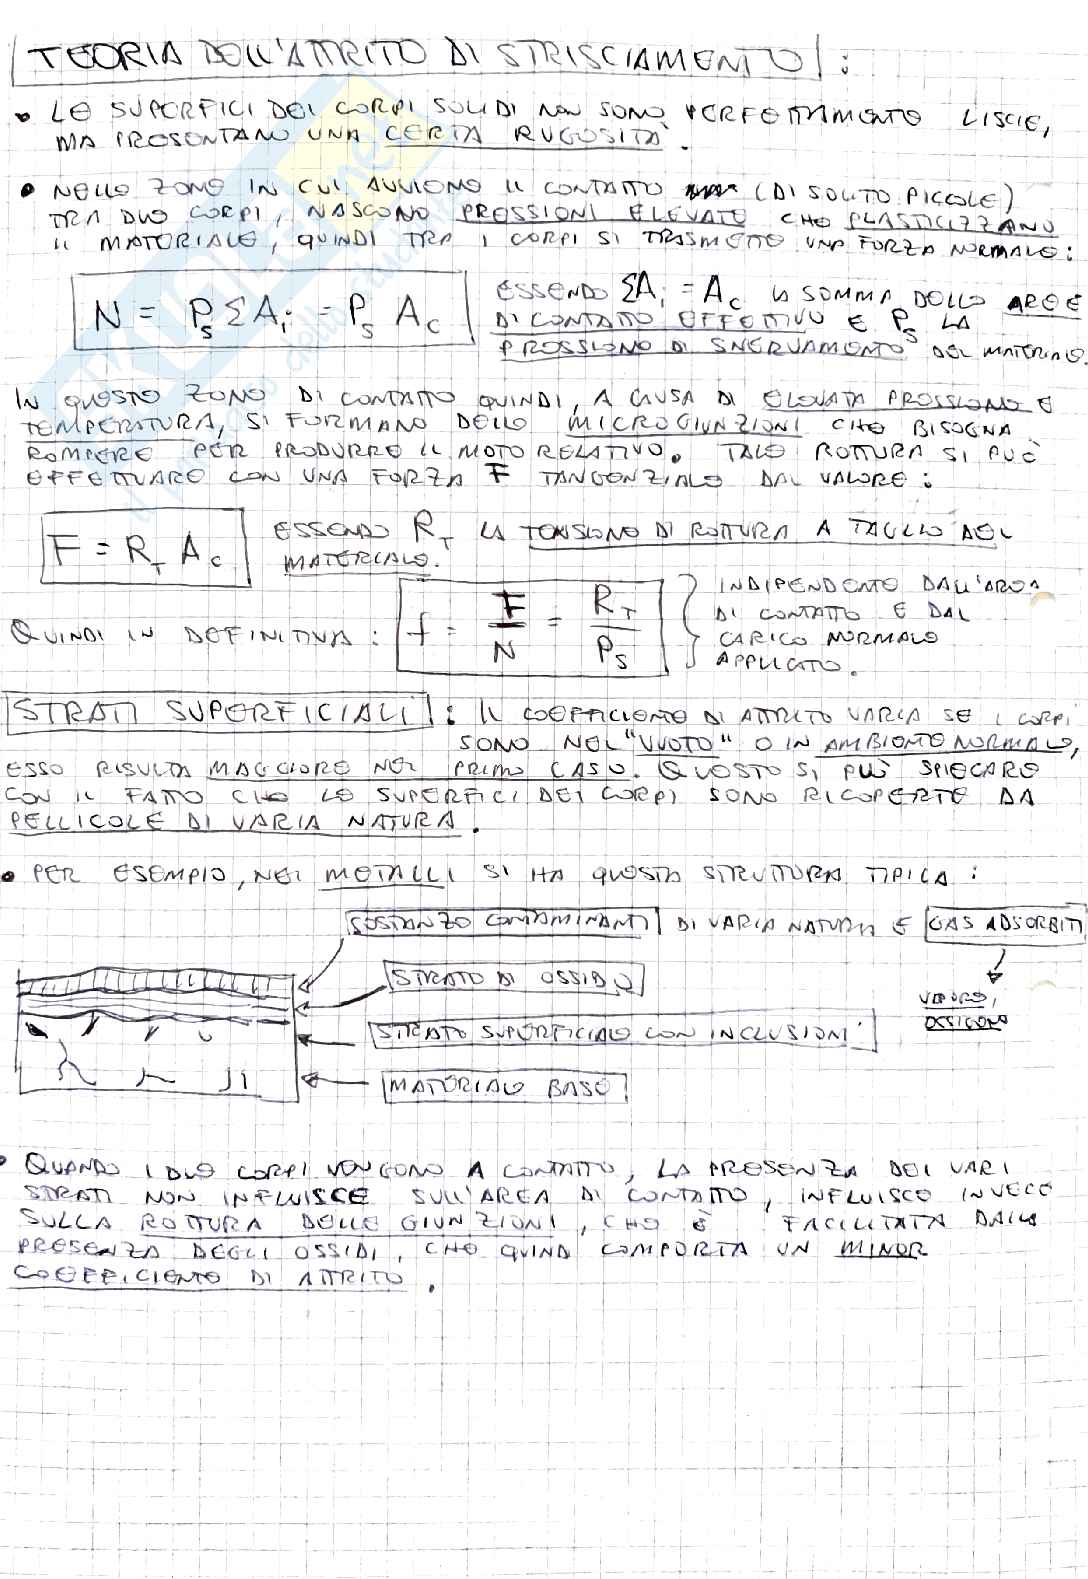 TEORIA DELL'ATTRITO DI STRISCIAMENTO :
• LE SUPERFICI DEI CORPI SOLIDI NON SONO PERFETTAMENTE LISCIE,
MA PRESENTANO UNA CERTA RUGOSITÀ.
• NELLE ZONE IN CUI AVVIENE IL CONTATTO (DI SOLITO PICCOLE)
TRA DUE CORPI, NASCONO PRESSIONI ELEVATE CHE PLASTICIZZANO
IL MATERIALE, QUINDI TRA I CORPI SI TRASMETTE UNA FORZA NORMALE:
N = Ps ΣAi = Ps Ac
ESSENDO ΣAi = Ac LA SOMMA DELLE AREE
DI CONTATTO EFFETTIVO E Ps LA
PRESSIONE DI SNERVAMENTO DEL MATERIALE.
IN QUESTE ZONE DI CONTATTO QUINDI, A CAUSA DI ELEVATA PRESSIONE E
TEMPERATURA, SI FORMANO DELLE MICROGIUNZIONI CHE BISOGNA
ROMPERE PER PRODURRE IL MOTO RELATIVO. TALE ROTTURA SI PUÒ
EFFETTUARE CON UNA FORZA F TANGENZIALE DAL VALORE:
F = RT Ac
ESSENDO RT LA TENSIONE DI ROTTURA A TAGLIO DEL
MATERIALE.
QUINDI IN DEFINITIVA: f = F/N = RT/Ps
INDIPENDENTE DALL'AREA
DI CONTATTO E DAL
CARICO NORMALE
APPLICATO.
STRATI SUPERFICIALI : IL COEFFICIENTE DI ATTRITO VARIA SE I CORPI
SONO NEL "VUOTO" O IN AMBIENTE NORMALE,
ESSO RISULTA MAGGIORE NEL PRIMO CASO. QUESTO SI PUÒ SPIEGARE
CON IL FATTO CHE LE SUPERFICI DEI CORPI SONO RICOPERTE DA
PELLICOLE DI VARIA NATURA.
• PER ESEMPIO, NEI METALLI SI HA QUESTA STRUTTURA TIPICA:
SOSTANZE CONTAMINANTI DI VARIA NATURA E GAS ADSORBITI
STRATO DI OSSIDO
VAPORE,
OSSIGENO
STRATO SUPERFICIALE CON INCLUSIONI
MATERIALE BASE
• QUANDO I DUE CORPI VENGONO A CONTATTO, LA PRESENZA DEI VARI
STRATI NON INFLUISCE SULL'AREA DI CONTATTO, INFLUISCE INVECE
SULLA ROTTURA DELLE GIUNZIONI, CHE È FACILITATA DALLA
PRESENZA DEGLI OSSIDI, CHE QUINDI COMPORTA UN MINOR
COEFFICIENTE DI ATTRITO.